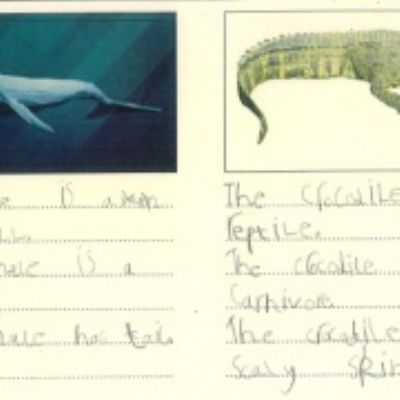 is a
hale is a
hale has tail.
The crocodile
reptile.
The crocodile
Carnivore.
The crocodile
Scaly skin